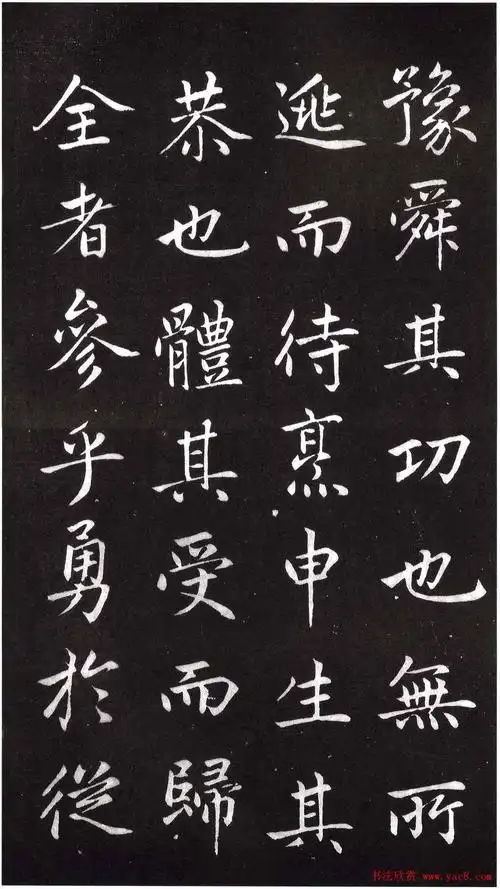 豫舜其功也無所
逃而待烹申生其
恭也體其受而歸
全者參乎勇於從
书法欣赏 www.yac8.com